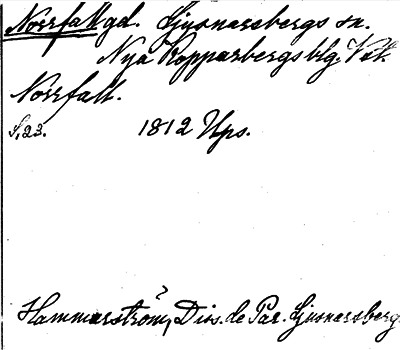 Norrfall gd. Ljusnarsbergs sn.
Nya Kopparbergs blg. Vstm.
Norrfall.
S. 23. 1812 Ups.
Hammarström, Diss. de Par. Ljusnarsberg